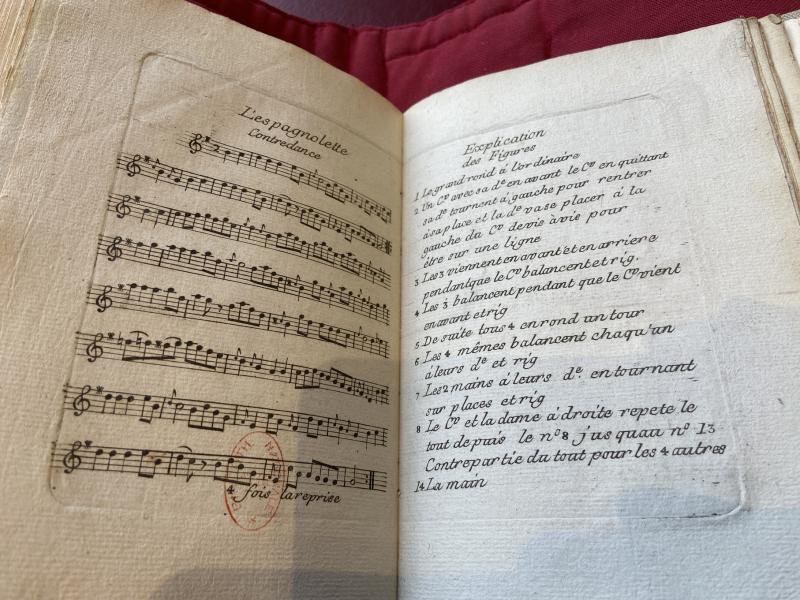 L'espagnolette
Contredance
2
4 fois la reprise
Explication
des Figures
1 Le grand rond á l'ordinaire
2 Un Cᵛ avec sa dᵉ en avant le Cᵛ en quittant
sa dᵉ tournent á gauche pour rentrer
á sa place et la dᵉ va se placer á la
gauche du Cᵛ devis àvis pour
étre sur une ligne
3 Les 3 viennent en avant et en arriere
pendant que le Cᵛ balancent et rig.
4 Les 3 balancent pendant que le Cᵛ vient
en avant et rig
5 De suite tous 4 en rond un tour
6 Les 4 mêmes balancent chaqu'un
á leurs dᵉ et rig
7 Les 2 mains á leurs dᵉ. en tournant
sur places et rig
8 Le Cᵛ et la dame á droite repete le
tout depuis le nº 8 jusquau nº 13
Contrepartie du tout pour les 4 autres
14 La main